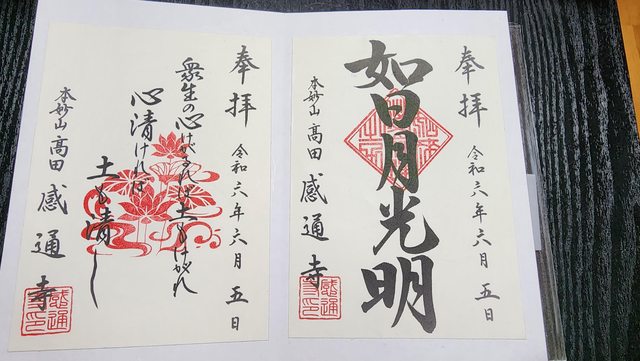 奉拝
令和六年六月五日
如日月光明
本妙山 髙田 感通寺
奉拝
令和六年六月五日
衆生の心けがるれば土もけがれ
心清ければ
土も清し
本妙山 髙田 感通寺